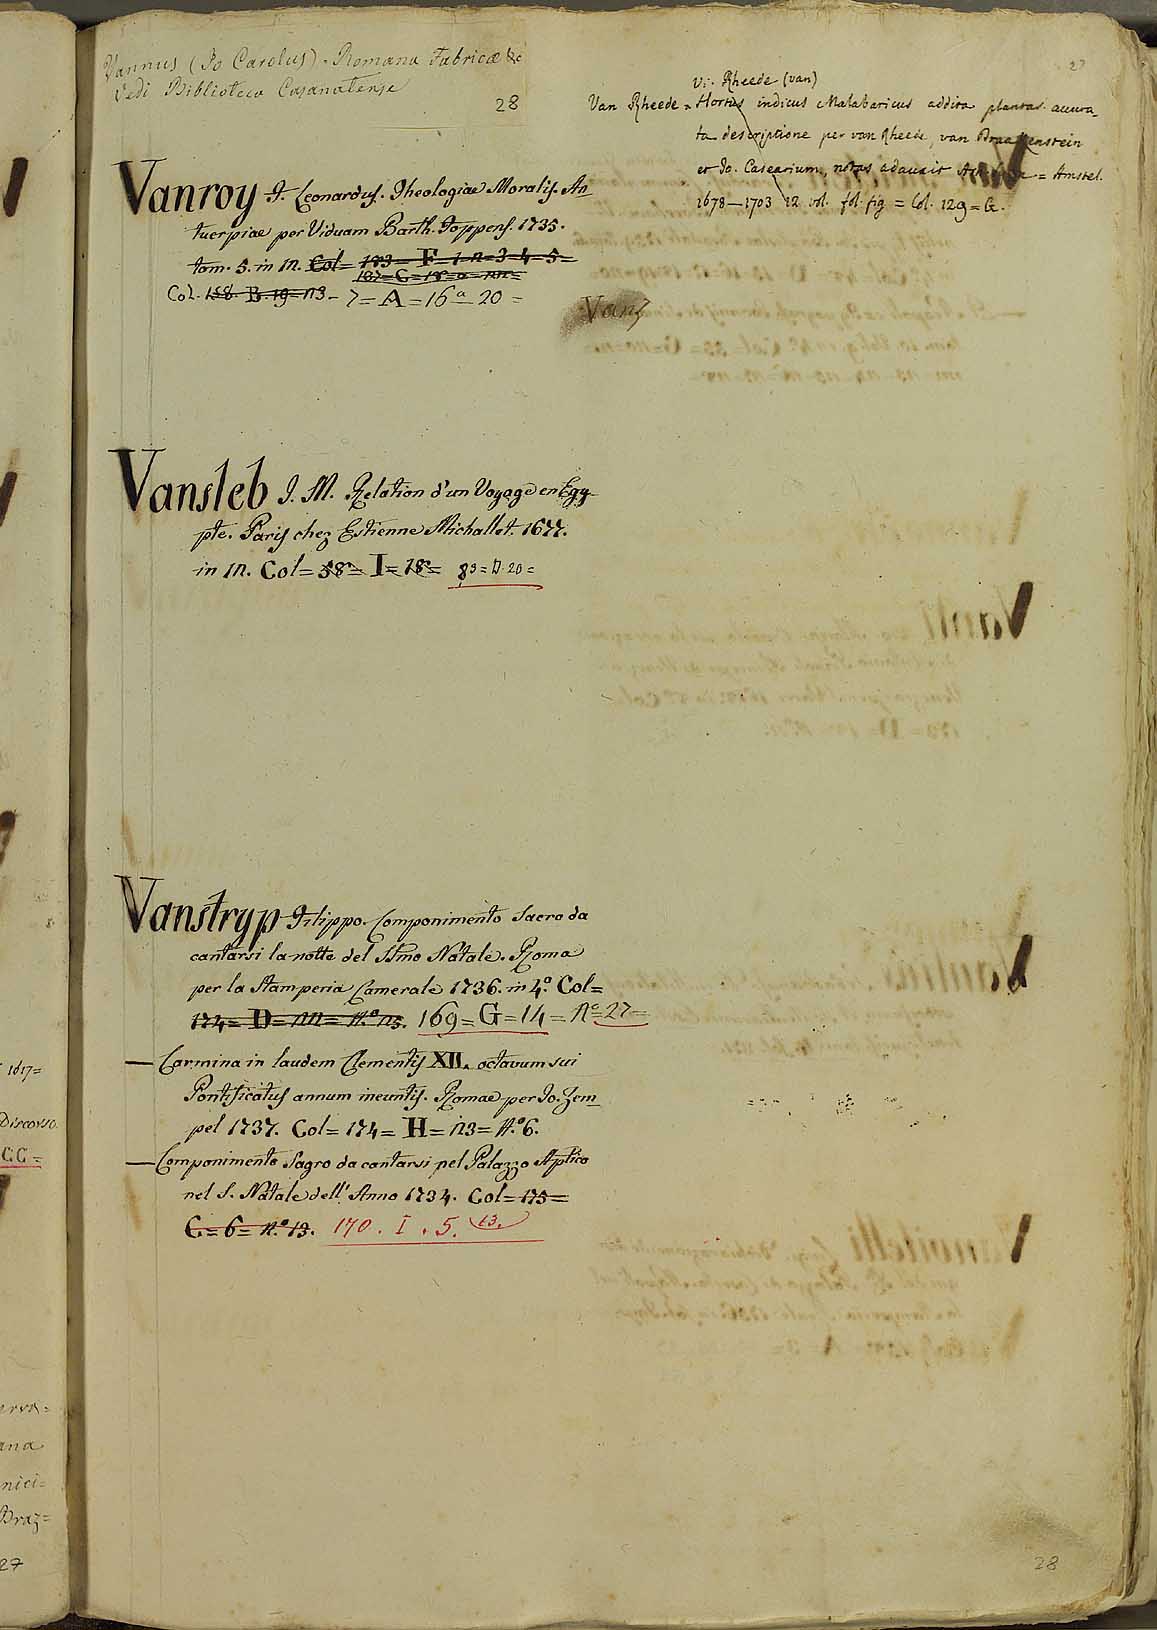 Vannus (Jo Carolus). Romana Fabricæ &c
Vedi Biblioteca Casanatense
28
Vanroy J. Leonardus. Theologiae Moralis. An
tuerpiae per Viduam Barth. Foppens. 1735.
tom. 5. in 12. Col= 183= F= 1-2=3-4-5=
187=C=18=a=
Col. 158. B. 19=n3 - 7=A=16 a 20=
Vansleb J. M. Relation d'un Voyage en Egy-
pte. Paris chez Estienne Michallet. 1677.
in 12. Col=58=I=18= 83=D.20=
Vanstryp Filippo. Componimento Sacro da
cantarsi la notte del SSmo Natale. Roma
per la Stamperia Camerale 1736. in 4.º Col=
174=D= N.º 13. 169=G=14=Nº=27=
— Carmina in laudem Clementis XII. octavum sui
Pontificatus annum ineuntis. Romae per Jo. Zem
pel 1737. Col=174=H=n3=N.º6.
— Componimento Sagro da cantarsi nel Palazzo Aplico
nel S. Natale dell' Anno 1734. Col=175=
C=6=N.º 13. 170. I. 5. 13.
27
Vi. Rheede (van)
Van Rheede = Hortus indicus Malabaricus addita plantar. accura-
ta descriptione per van Rheede, van Draakenstein
et Jo. Casearium, notas adauxit = Amstel.
1678—1703 12 vol. fol. fig = Col. 129=G.
Vanz
28
1617=
Discorso
CC=
erva=
ana
nici=
Braz=
27